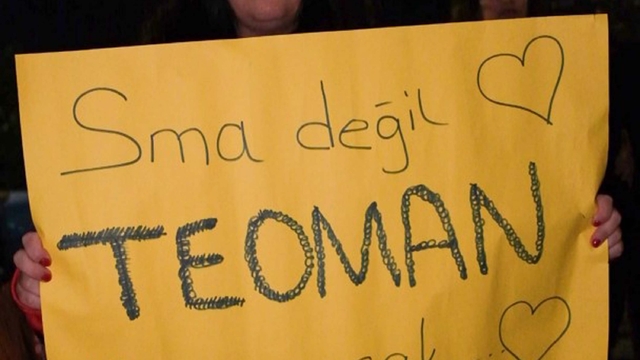 Sma değil
TEOMAN